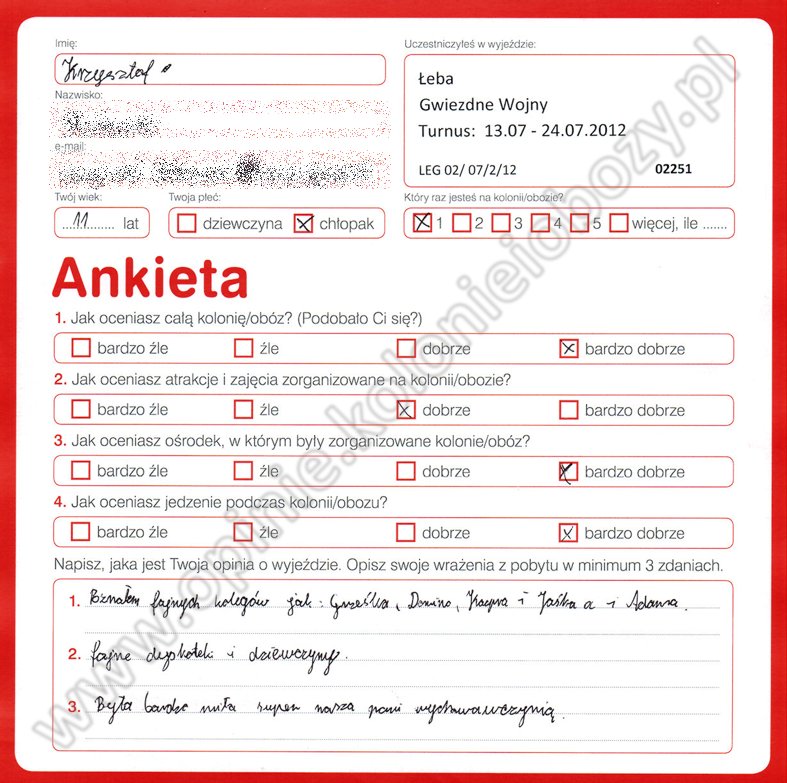 Imię:
Krzysztof
Uczestniczyłeś w wyjeździe:
Łeba
Gwiezdne Wojny
Turnus: 13.07 - 24.07.2012
LEG 02/ 07/2/12 02251
Nazwisko:
e-mail:
Twój wiek:
11 lat
Twoja płeć:
dziewczyna chłopak
Który raz jesteś na kolonii/obozie?
1 2 3 4 5 więcej, ile .......
Ankieta
1. Jak oceniasz całą kolonię/obóz? (Podobało Ci się?)
bardzo źle źle dobrze bardzo dobrze
2. Jak oceniasz atrakcje i zajęcia zorganizowane na kolonii/obozie?
bardzo źle źle dobrze bardzo dobrze
3. Jak oceniasz ośrodek, w którym były zorganizowane kolonie/obóz?
bardzo źle źle dobrze bardzo dobrze
4. Jak oceniasz jedzenie podczas kolonii/obozu?
bardzo źle źle dobrze bardzo dobrze
Napisz, jaka jest Twoja opinia o wyjeździe. Opisz swoje wrażenia z pobytu w minimum 3 zdaniach.
1. Poznałem fajnych kolegów jak: Grześka, Domino, Kacpra i Jaśka a i Adama.
2. fajne dyskoteki i dziewczyny.
3. Była bardzo miła super nasza pani wychowawczynią.
www.opinie.kolonieiobozy.pl